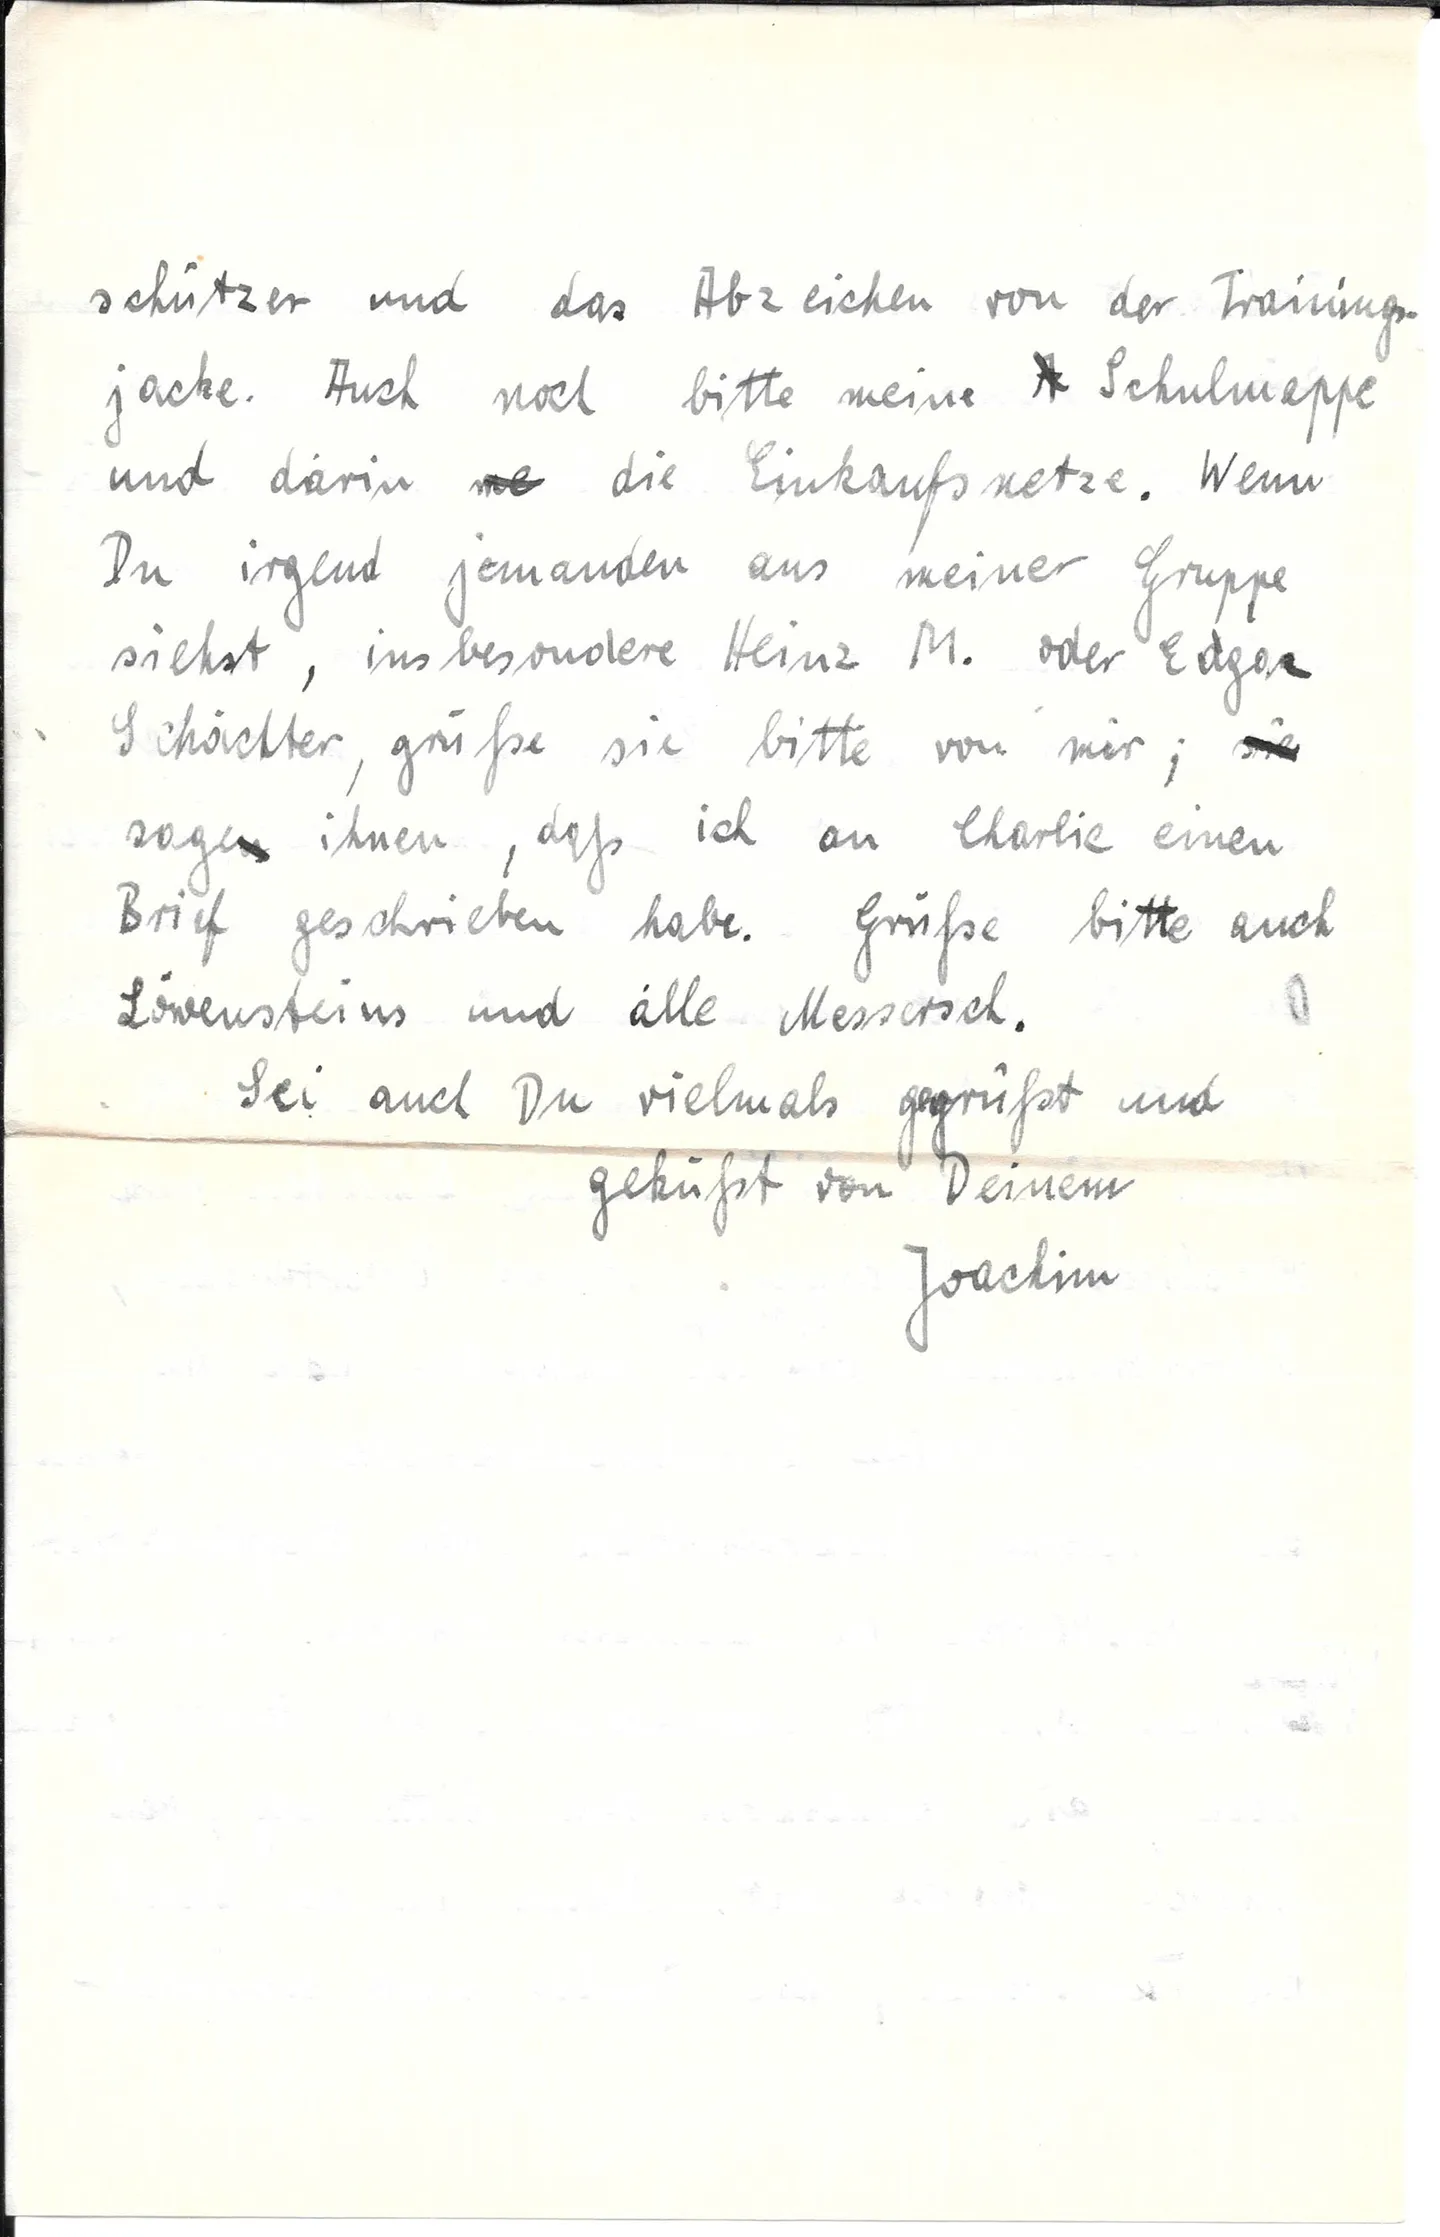 schützer und das Abzeichen von der Trainings-
jacke. Auch noch bitte meine A Schulmappe
und darin me die Einkaufsnetze. Wenn
Du irgend jemanden aus meiner Gruppe
siehst, insbesondere Heinz M. oder Edgar
Schächter, grüße sie bitte von mir; sie
sagen ihnen, daß ich an Charlie einen
Brief geschrieben habe. Grüße bitte auch
Löwensteins und alle Messersch.
Sei auch Du vielmals gegrüßt und
geküßt von Deinem
Joachim